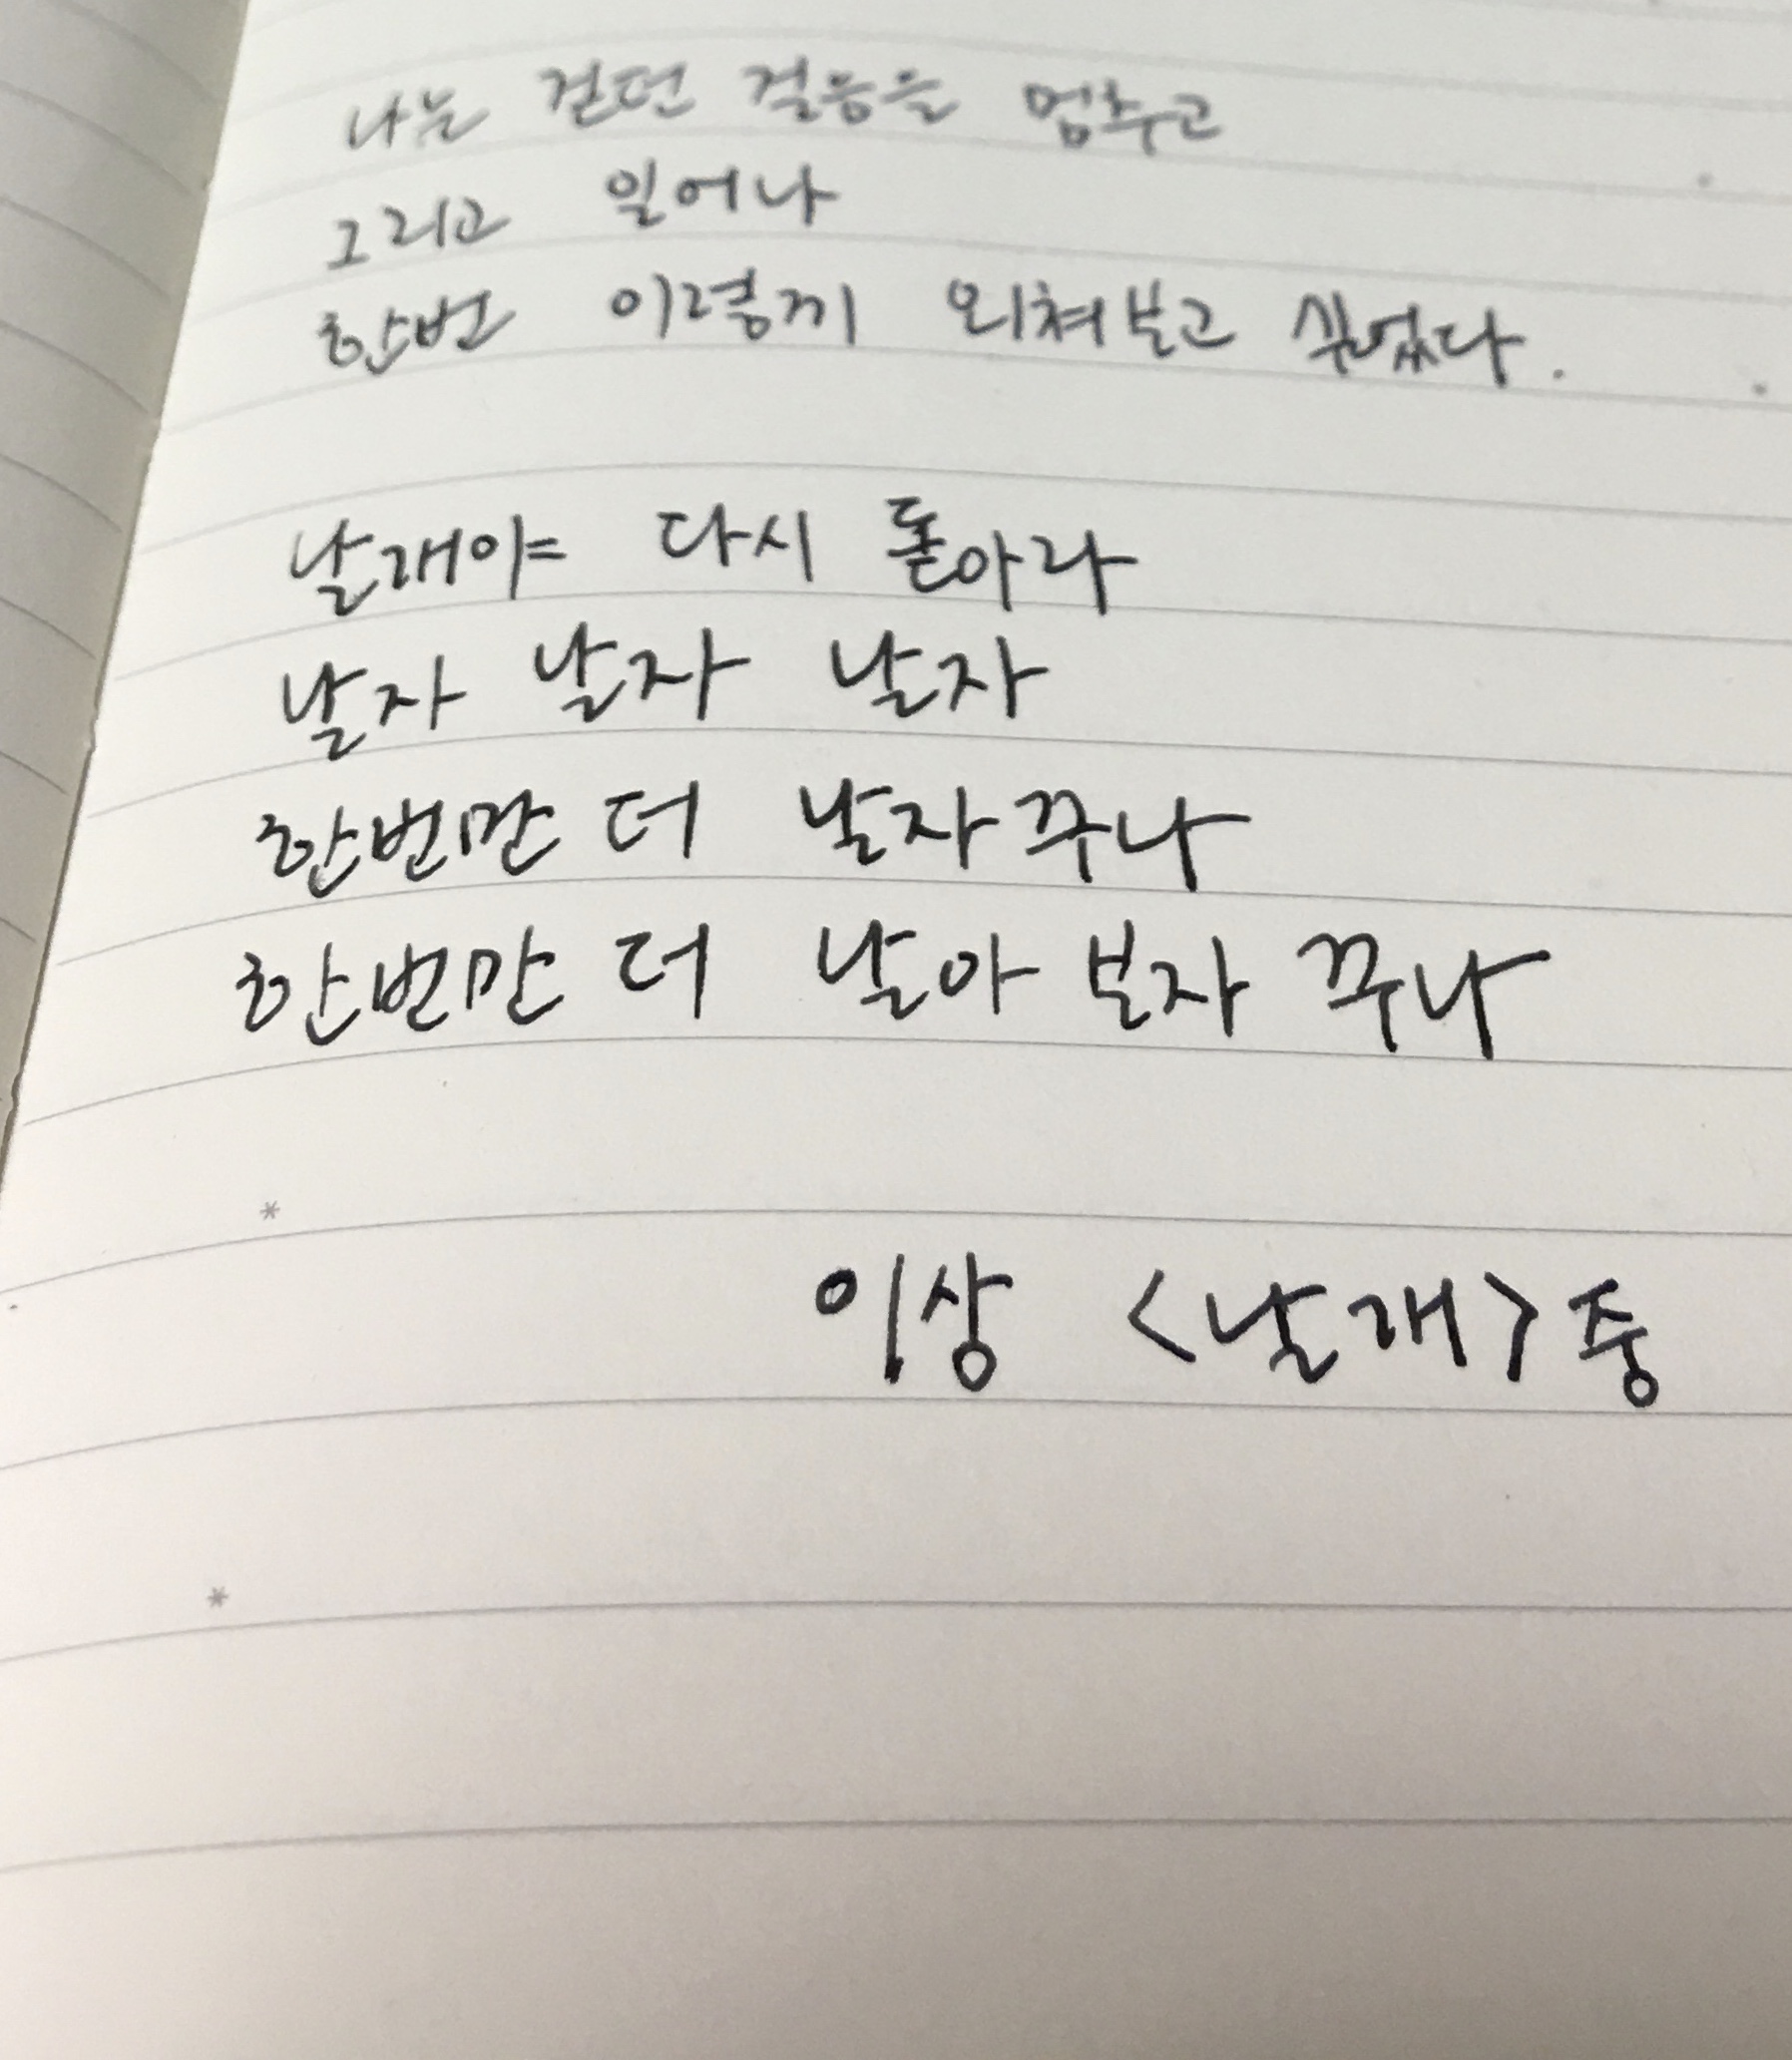 나는 걷던 걸음을 멈추고
그리고 일어나
한번 이렇게 외쳐보고 싶었다.
날개야 다시 돋아라
날자 날자 날자
한번만 더 날자꾸나
한번만 더 날아 보자 꾸나
이상 <날개> 중